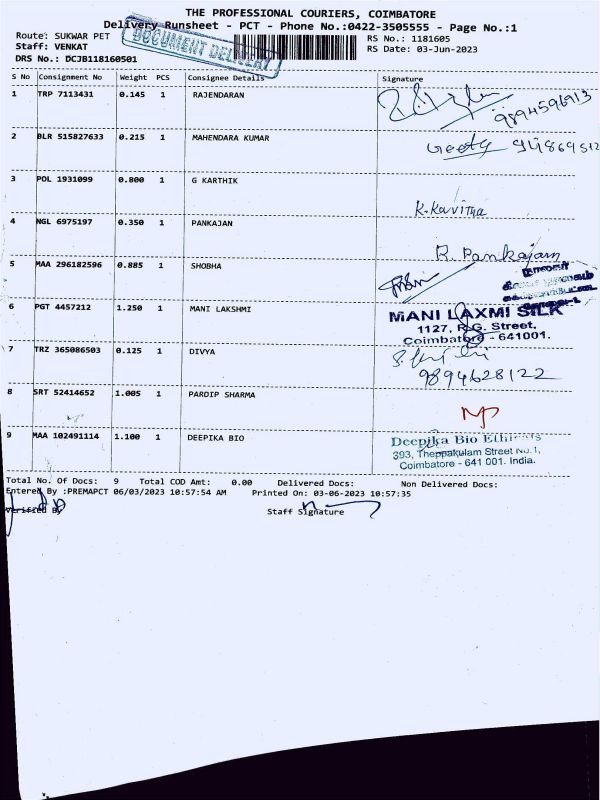 THE PROFESSIONAL COURIERS, COIMBATORE
Delivery Runsheet - PCT - Phone No.:0422-3505555 - Page No.:1
Route: SUKWAR PET
Staff: VENKAT
DRS No.: DCJB118160501
DOCUMENT DELIVERY
RS No.: 1181605
RS Date: 03-Jun-2023
S No Consignment No Weight PCS Consignee Details Signature
1 TRP 7113431 0.145 1 RAJENDARAN
9894596913
2 BLR 515827633 0.215 1 MAHENDARA KUMAR
Geeta 94869512
3 POL 1931099 0.800 1 G KARTHIK
K.Kavitha
4 NGL 6975197 0.350 1 PANKAJAN
R. Pankajam
5 MAA 296182596 0.885 1 SHOBHA
6 PGT 4457212 1.250 1 MANI LAKSHMI
MANI LAXMI SILK
1127, R.G. Street,
Coimbatore - 641001.
7 TRZ 365086503 0.125 1 DIVYA
9894628122
8 SRT 52414652 1.005 1 PARDIP SHARMA
9 MAA 102491114 1.100 1 DEEPIKA BIO
Deepika Bio Ethicals
393, Theppakulam Street No.1,
Coimbatore - 641 001. India.
Total No. Of Docs: 9 Total COD Amt: 0.00 Delivered Docs: Non Delivered Docs:
Entered By :PREMAPCT 06/03/2023 10:57:54 AM Printed On: 03-06-2023 10:57:35
Verified By Staff Signature